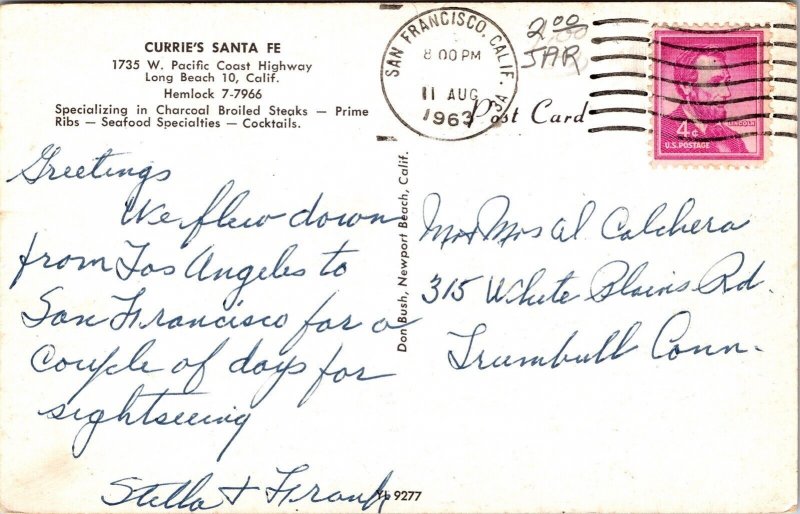 CURRIE'S SANTA FE
1735 W. Pacific Coast Highway
Long Beach 10, Calif.
Hemlock 7-7966
Specializing in Charcoal Broiled Steaks — Prime
Ribs — Seafood Specialties — Cocktails.
SAN FRANCISCO, CALIF.
8 00 PM
11 AUG
1963
2.00
JAR
Post Card
LINCOLN
4¢
U.S. POSTAGE
Greetings
We flew down
from Los Angeles to
San Francisco for a
couple of days for
sightseeing
Stella & Frank
Don Bush, Newport Beach, Calif.
Mr & Mrs Al Calchera
315 White Plains Rd.
Trumbull Conn.
9277